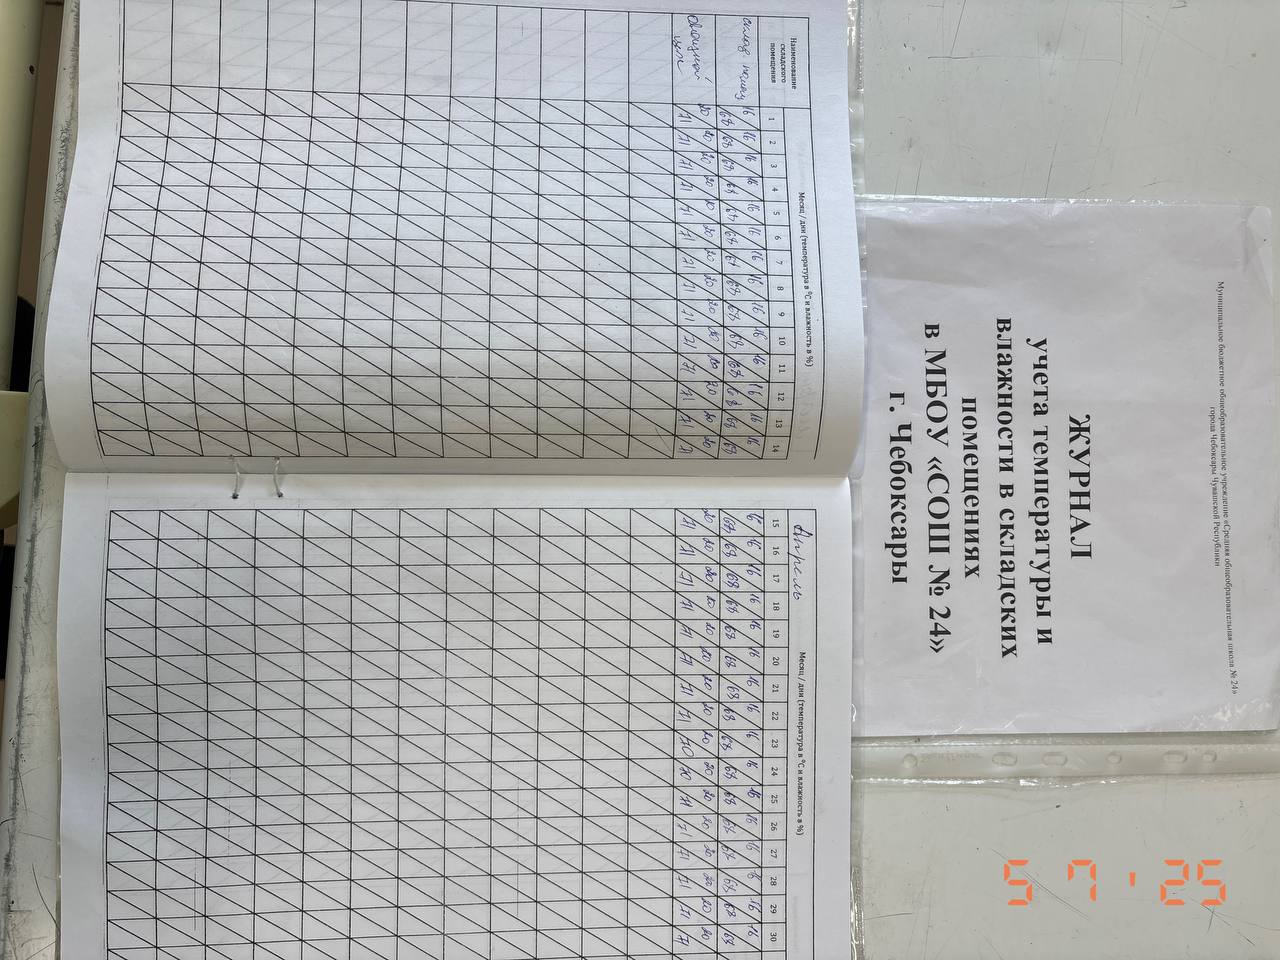 Муниципальное бюджетное общеобразовательное учреждение «Средняя общеобразовательная школа № 24»
города Чебоксары Чувашской Республики
ЖУРНАЛ
учета температуры и
влажности в складских
помещениях
в МБОУ «СОШ № 24»
г. Чебоксары
Наименование складского помещения
Месяц / дни (температура в °С и влажность в %)
1 2 3 4 5 6 7 8 9 10 11 12 13 14
склад
16 16 16 16 16 16 16 16 16 16 16 16 16 16
68 68 68 68 68 68 68 68 68 68 68 68
овощной цех
20 20 20 20 20 20 20 20 20 20 20 20 20
71 71 71 71 71 71 71 71 71 71 71 71 71 71
Апрель
Месяц / дни (температура в °С и влажность в %)
15 16 17 18 19 20 21 22 23 24 25 26 27 28 29 30
16 16 16 16 16 16 16 16 16 16 16 16 16 16 16 16
68 68 68 68 68 68 68 68 68 68 68 68 68 68 68 68
20 20 20 20 20 20 20 20 20 20 20 20 20 20 20 20
71 71 71 71 71 71 71 71 70 70 71 71 71 71 71 71
5 7 ' 25